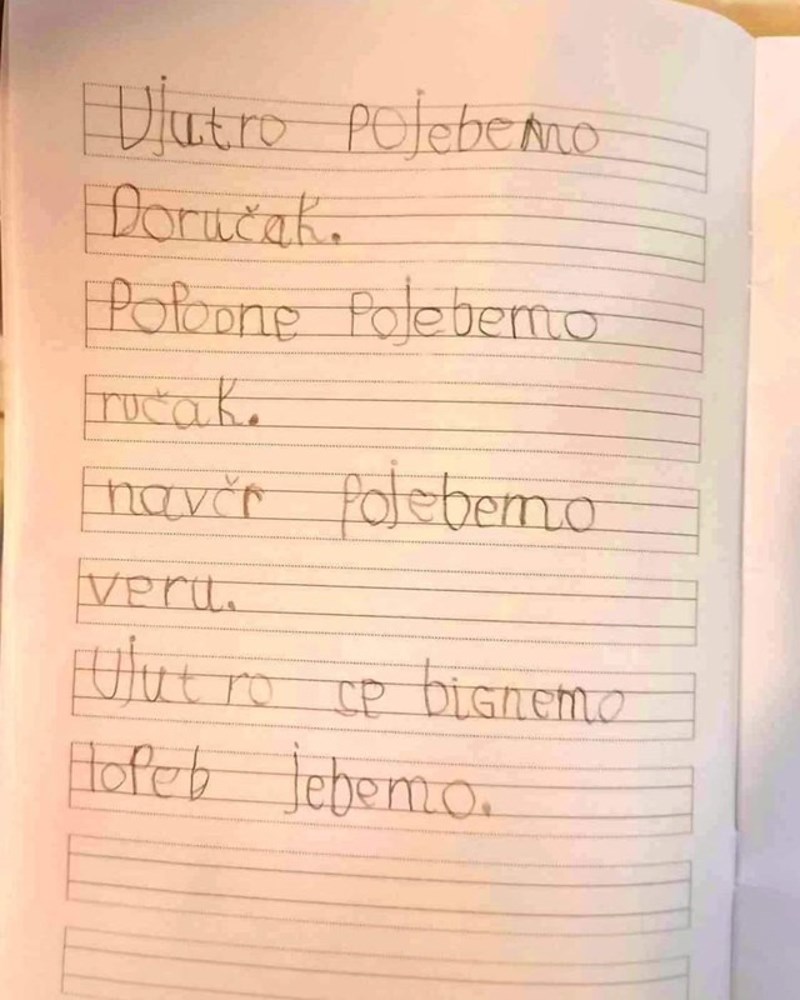 Ujutro pojebemo
Doručak.
Popodne Pojebemo
ručak.
navčr pojebemo
veru.
Ujutro se bignemo
jebemo.